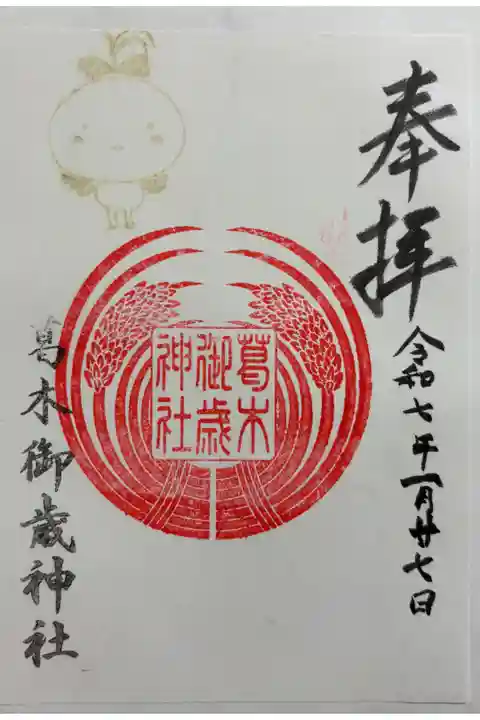 奉拝
令和七年一月廿七日
葛木
御歳
神社
葛木御歳神社